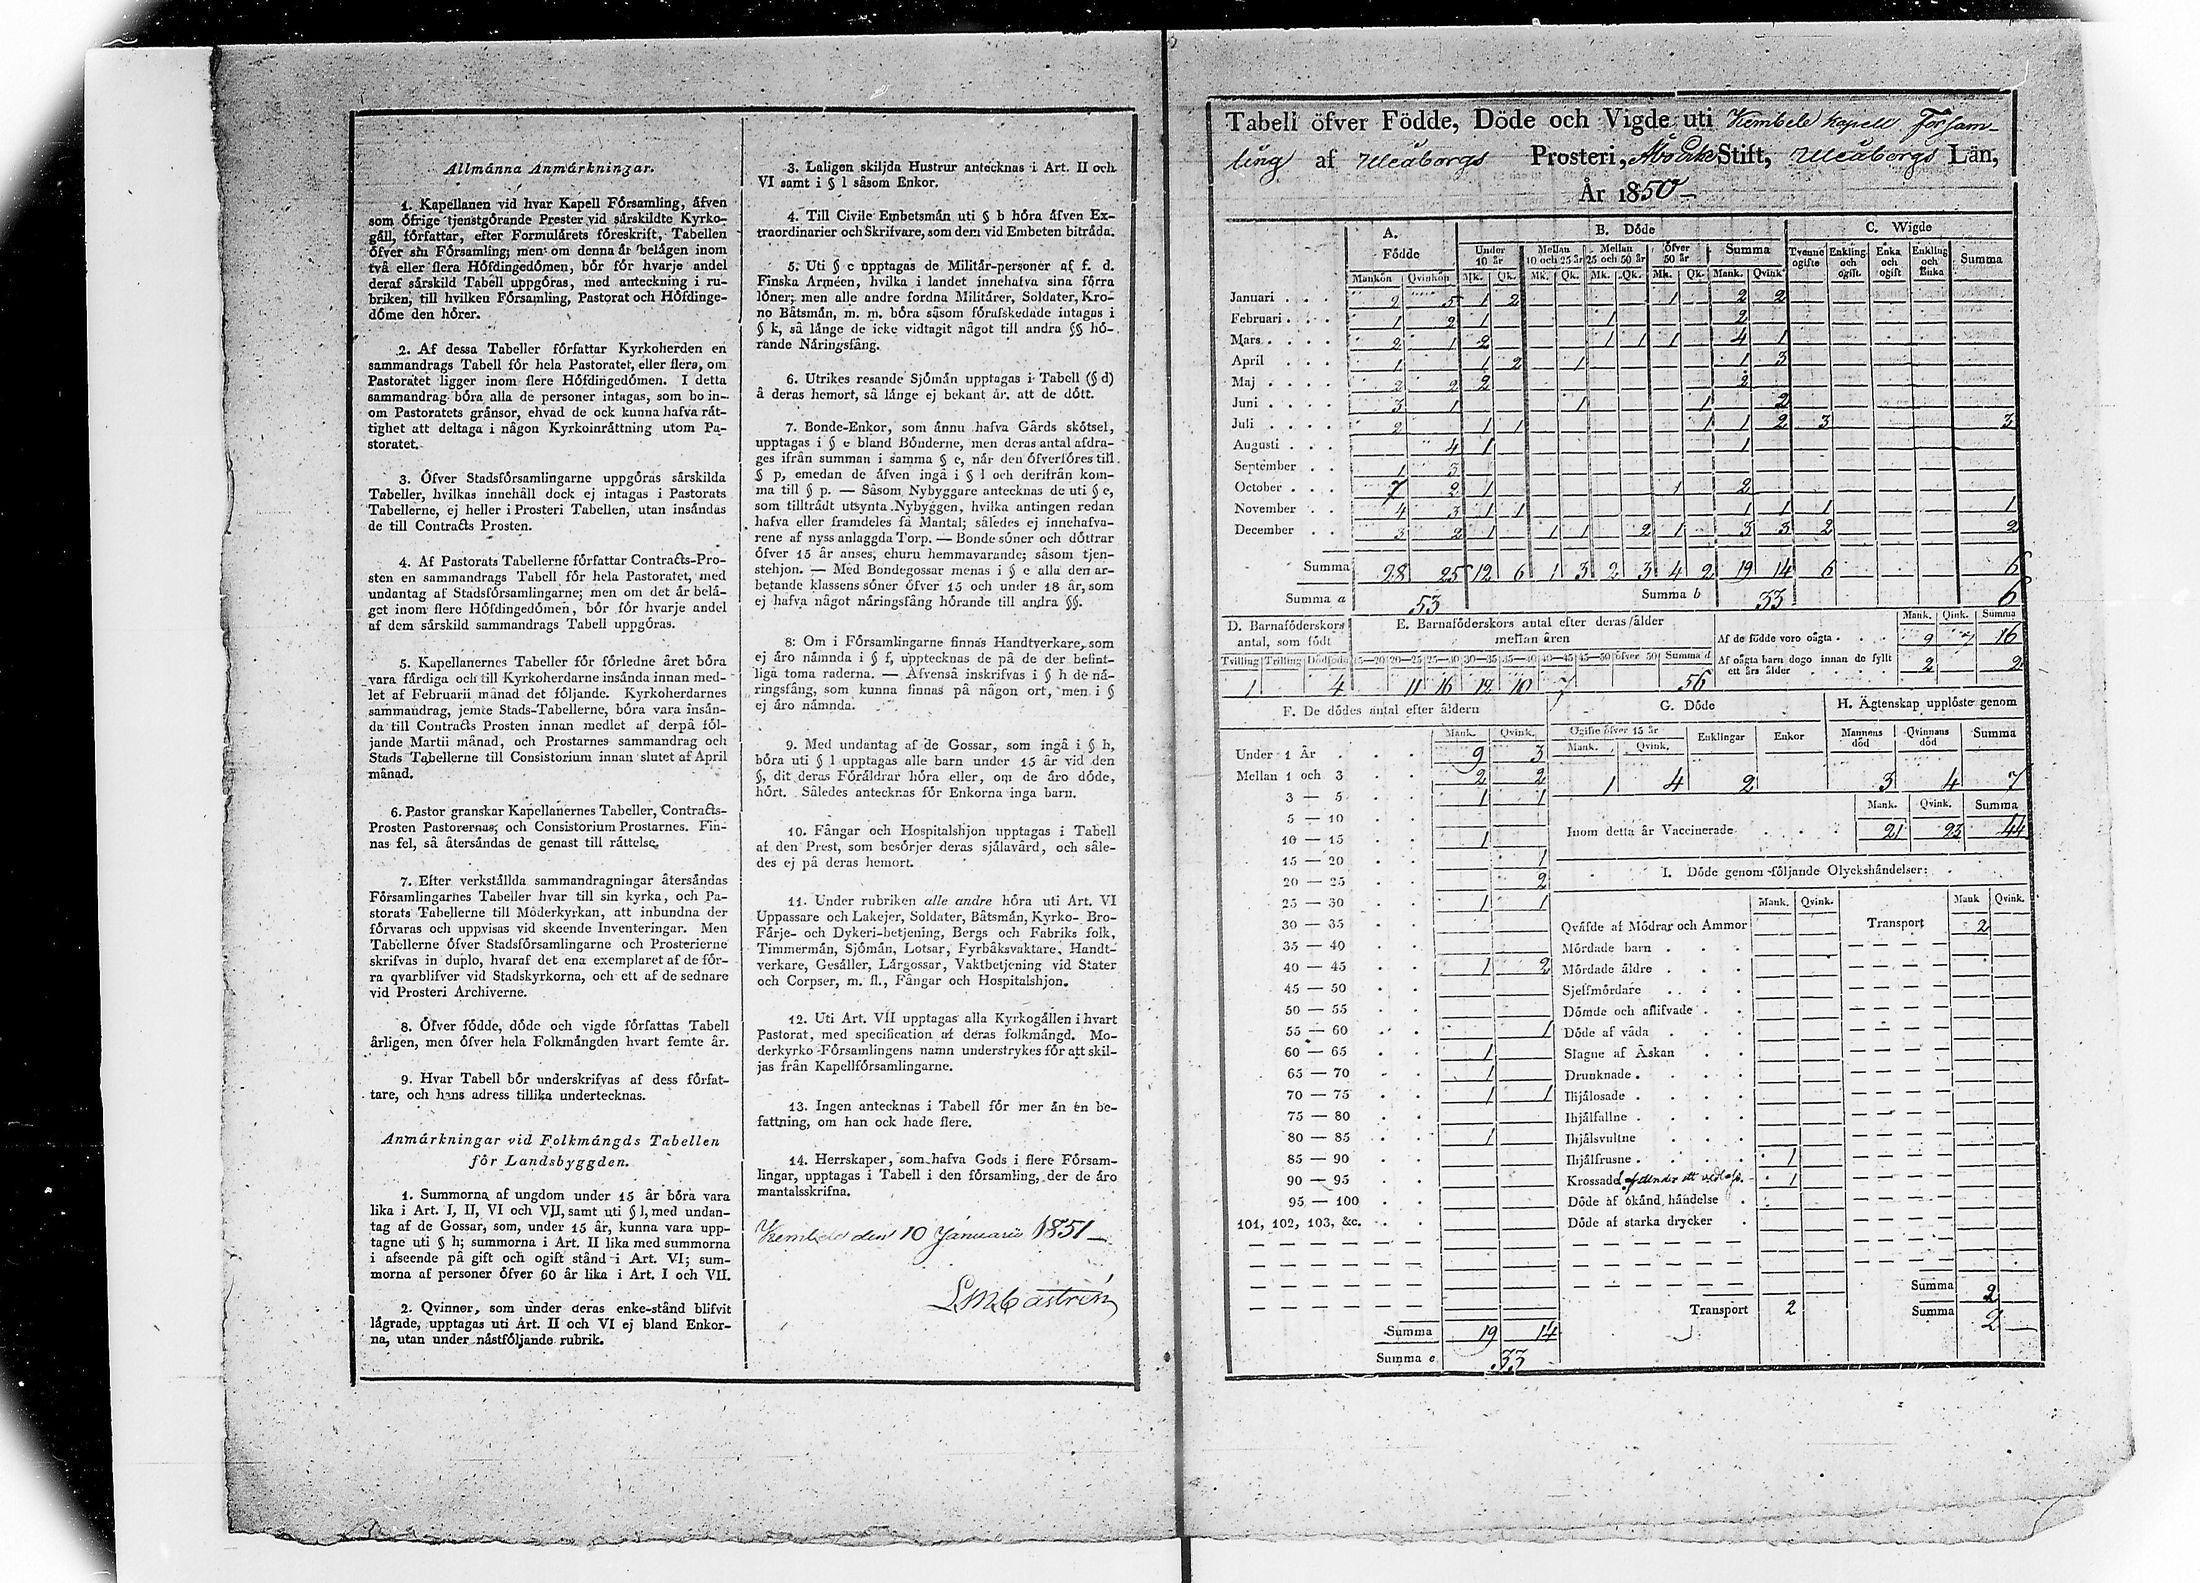 Allmánna Anmárkningar.
1. Kapellanen vid hvar Kapell Fórsamling, áfven
som ófrige tjenstgórande Prester vid sárskildte Kyrko-
gáll, fórfattar, efter Formulárets fóreskrift, Tabellen
ófver sin Fórsamling; men om denna ár belágen inom
två eller flera Hófdingedómen, bór fór hvarje andel
deraf sárskild Tabell uppgóras, med anteckning i ru-
briken, till hvilken Fórsamling, Pastorat och Hófdinge-
dóme den hórer.
2. Af dessa Tabeller fórfattar Kyrkoherden en
sammandrags Tabell fór hela Pastoratet, eller flera, om
Pastoratet ligger inom flere Hófdingedómen. I detta
sammandrag bóra alla de personer intagas, som bo in-
om Pastoratets gránsor, ehvad de ock kunna hafva rát-
tighet att deltaga i någon Kyrkoinráttning utom Pa-
storatet.
3. Ófver Stadsfórsamlingarne uppgóras sárskilda
Tabeller, hvilkas innehåll dock ej intagas i Pastorats
Tabellerne, ej heller i Prosteri Tabellen, utan insándas
de till Contracts Prosten.
4. Af Pastorats Tabellerne fórfattar Contracts-Pro-
sten en sammandrags Tabell fór hela Pastoratet, med
undantag af Stadsfórsamlingarne; men om det ár belá-
get inom flere Hófdingedómen, bór fór hvarje andel
af dem sárskild sammandrags Tabell uppgóras.
5. Kapellanernes Tabeller fór fórledne året bóra
vara fárdiga och till Kyrkoherdarne insánda innan med-
let af Februarii månad det fóljande. Kyrkoherdarnes
sammandrag, jemte Stads-Tabellerne, bóra vara insán-
da till Contracts Prosten innan medlet af derpå fól-
jande Martii månad, och Prostarnes sammandrag och
Stads Tabellerne till Consistorium innan slutet af April
månad.
6. Pastor granskar Kapellanernes Tabeller, Contracts-
Prosten Pastorernas, och Consistorium Prostarnes. Fin-
nas fel, så återsándas de genast till ráttelse.
7. Efter verkstállda sammandragningar återsándas
Fórsamlingarnes Tabeller hvar till sin kyrka, och Pa-
storats Tabellerne till Móderkyrkan, att inbundna der
fórvaras och uppvisas vid skeende Inventeringar. Men
Tabellerne ófver Stadsfórsamlingarne och Prosterierne
skrifvas in duplo, hvaraf det ena exemplaret af de fór-
ra qvarblifver vid Stadskyrkorna, och ett af de sednare
vid Prosteri Archiverne.
8. Ófver fódde, dóde och vigde fórfattas Tabell
årligen, men ófver hela Folkmángden hvart femte år.
9. Hvar Tabell bór underskrifvas af dess fórfat-
tare, och hans adress tillika undertecknas.
Anmárkningar vid Folkmángds Tabellen
fór Landsbyggden.
1. Summorna af ungdom under 15 år bóra vara
lika i Art. I, II, VI och VII, samt uti § l, med undan-
tag af de Gossar, som, under 15 år, kunna vara upp-
tagne uti § h; summorna i Art. II lika med summorna
i afseende på gift och ogift stånd i Art. VI; sum-
morna af personer ófver 60 år lika i Art. I och VII.
2. Qvinnor, som under deras enke-stånd blifvit
lágrade, upptagas uti Art. II och VI ej bland Enkor-
na, utan under nástfóljande rubrik.
3. Laligen skiljda Hustrur antecknas i Art. II och
VI samt i § l såsom Enkor.
4. Till Civile Embetsmán uti § b hóra áfven Ex-
traordinarier och Skrifvare, som dem vid Embeten bitráda.
5. Uti § c upptagas de Militár-personer af f. d.
Finska Arméen, hvilka i landet innehafva sina fórra
lóner; men alle andre fordna Militárer, Soldater, Kro-
no Båtsmán, m. m. bóra såsom fórafskedade intagas i
§ k, så lánge de icke vidtagit något till andra §§ hó-
rande Náringsfång.
6. Utrikes resande Sjómán upptagas i Tabell (§ d)
å deras hemort, så lánge ej bekant ár, att de dótt.
7. Bonde-Enkor, som ánnu hafva Gårds skótsel,
upptagas i § e bland Bónderne, men deras antal afdra-
ges ifrån summan i samma § e, nár den ófverfóres till
§ p, emedan de áfven ingå i § l och derifrån kom-
ma till § p. — Såsom Nybyggare antecknas de uti § e,
som tilltrádt utsynta Nybyggen, hvilka antingen redan
hafva eller framdeles få Mantal; således ej innehafva-
rene af nyss anlaggda Torp. — Bonde sóner och dóttrar
ófver 15 år anses, churu hemmavarande; såsom tjen-
stehjon. — Med Bondegossar menas i § e alla den ar-
betande klassens sóner ófver 15 och under 18 år, som
ej hafva något náringsfång hórande till andra §§.
8: Om i Fórsamlingarne finnas Handtverkare, som
ej áro námnda i § f, upptecknas de på de der befint-
liga toma raderna. — Áfvenså inskrifvas i § h de ná-
ringsfång, som kunna finnas på någon ort, men i §
ej áro námnda.
9. Med undantag af de Gossar, som ingå i § h,
bóra uti § l upptagas alle barn under 15 år vid den
§, dit deras Fóráldrar hóra eller, om de áro dóde,
hórt. Således antecknas fór Enkorna inga barn.
10. Fångar och Hospitalshjon upptagas i Tabell
af den Prest, som besórjer deras sjálavård, och såle-
des ej på deras hemort.
11. Under rubriken alle andre hóra uti Art. VI
Uppassare och Lakejer, Soldater, Båtsmán, Kyrko- Bro-
Fárje- och Dykeri-betjening, Bergs och Fabriks folk,
Timmermán, Sjómán, Lotsar, Fyrbåksvaktare, Handt-
verkare, Gesáller, Lárgossar, Vaktbetjening vid Stater
och Corpser, m. fl., Fångar och Hospitalshjon.
12. Uti Art. VII upptagas alla Kyrkogállen i hvart
Pastorat, med specification af deras folkmángd. Mo-
derkyrko Fórsamlingens namn understrykes fór att skil-
jas från Kapellfórsamlingarne.
13. Ingen antecknas i Tabell fór mer án én be-
fattning, om han ock hade flere.
14. Herrskaper, som hafva Gods i flere Fórsam-
lingar, upptagas i Tabell i den fórsamling, der de áro
mantalsskrifna.
Kembele den 10 Januarii 1851
L M Castrén
Tabell öfver Födde, Döde och Vigde uti Kembele kapell Församling
af Uleåborgs Prosteri, Åbo Erke Stift, Uleåborgs Län,
År 1850
A. Födde B. Döde C. Wigde
Under 10 år Mellan 10 och 25 år Mellan 25 och 50 år Öfver 50 år Summa Tvenne ogifte Enkling och ogift. Enka och ogift Enkling och Enka Summa
Mankön Qvinkön Mk. Qk. Mk. Qk. Mk. Qk. Mk. Qk. Mank. Qvink
Januari 2 5 1 2 1 2 2
Februari 1 2 1 1 2
Mars 2 1 2 1 1 1 4 1
April 1 1 2 1 1 3
Maj 2 2 2 2
Juni 3 1 1 1 2
Juli 2 1 1 1 1 2 3 3
Augusti 4 1 1
September 1 3
October 7 2 1 1 2
November 4 3 1 1 1 1 1 1
December 3 2 1 1 1 2 1 3 3 2 2
Summa 28 25 12 6 1 3 2 3 4 2 19 14 6 6
Summa a 53 Summa b 33 6
D. Barnaföderskors antal, som födt
Tvilling Trilling Dödfödda
1 4
E. Barnaföderskors antal efter deras ålder mellan åren
15—20 20—25 25—30 30—35 35—40 40—45 45—50 öfver 50 Summa d
11 16 12 10 7 56
Mank. Qink. Summa
Af de födde voro oägta 9 7 16
Af oägta barn dogo innan de fyllt ett års ålder 2 2
F. De dödes antal efter åldern
Mank. Qvink.
Under 1 År 9 3
Mellan 1 och 3 2 2
3 — 5 1 1
5 — 10
10 — 15 1
15 — 20 1
20 — 25 2
25 — 30 1 1
30 — 35
35 — 40
40 — 45 1 2
45 — 50
50 — 55
55 — 60 1
60 — 65 1
65 — 70 1
70 — 75 1 1
75 — 80
80 — 85 1
85 — 90
90 — 95
95 — 100
101, 102, 103, &c.
Summa 19 14
Summa e 33
G. Döde
Ogifte öfver 15 år Enklingar Enkor
Mank. Qvink.
1 4 2
H. Ägtenskap upplöste genom
Mannens död Qvinnans död Summa
3 4 7
Mank. Qvink. Summa
Inom detta år Vaccinerade 21 23 44
I. Döde genom följande Olyckshändelser:
Mank. Qvink. Mank Qvink.
Qväfde af Mödrar och Ammor Transport 2
Mördade barn
Mördade äldre
Sjelfmördare
Dömde och aflifvade
Döde af våda
Slagne af Åskan
Drunknade
Ihjälosade
Ihjälfallne
Ihjälsvultne
Ihjälfrusne 1
Krossade 1
Döde af okänd händelse
Döde af starka drycker
Summa 2
Transport 2 Summa 2